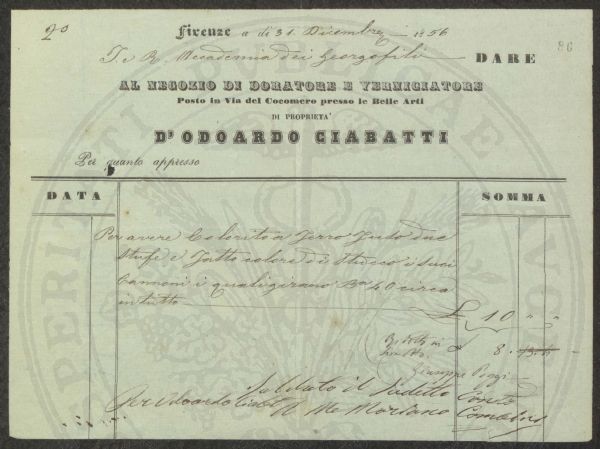 20
Firenze a dì 31. Dicembre 1856
86
I. e R. Accademia dei Georgofili DARE
AL NEGOZIO DI DORATORE E VERNICIATORE
Posto in Via del Cocomero presso le Belle Arti
DI PROPRIETA'
D'ODOARDO CIABATTI
Per quanto appresso
DATA SOMMA
Per avere Colorito a Ferro Fuso due
Stufe e Fatto colore di Stucco i suoi
Cannoni i quali girano Ba 40 circa
in tutto £ 10 " "
Ridotto in
£ 8. 13. 4
Giuseppe Poggi
Saldato il Sudetto Conto
Per Odoardo Ciabatti